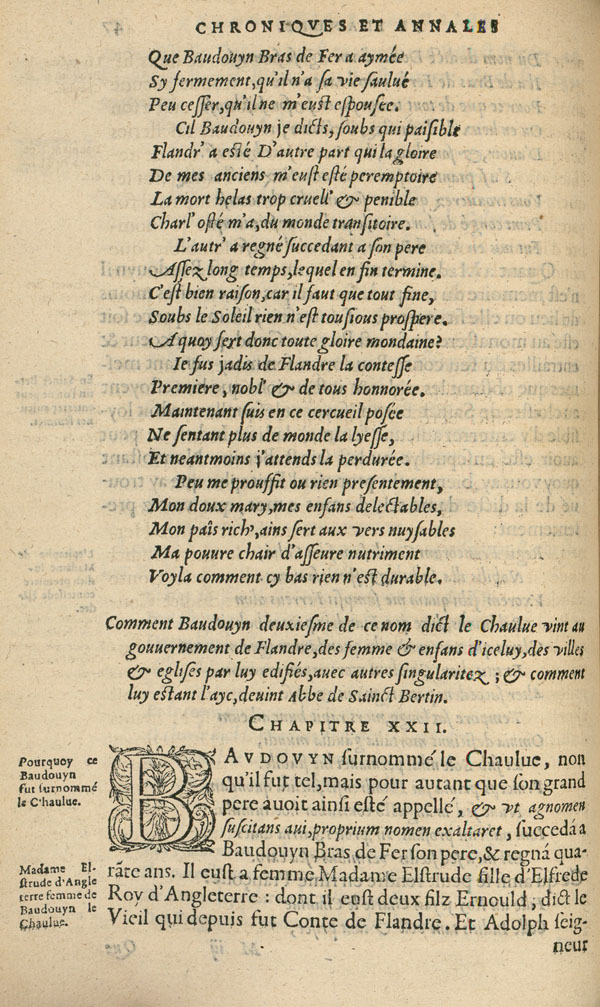 CHRONIQVES ET ANNALES
Que Baudouyn Bras de Fer a aymée
Sy fermement, qu'il n'a sa vie saulué
Peu cesser, qu'il ne m'eust espousee.
Cil Baudouyn je dicts, soubs qui paisible
Flandr' a esté D'autre part qui la gloire
De mes anciens m'eust esté peremptoire
La mort helas trop cruell' & penible
Charl' osté m'a, du monde transitoire.
L'autr' a regné succedant a son pere
Assez long temps, lequel en fin termine.
C'est bien raison, car il faut que tout fine,
Soubs le Soleil rien n'est tousious prospere.
A quoy sert donc toute gloire mondaine?
Ie fus jadis de Flandre la contesse
Premiere, nobl' & de tous honnorée.
Maintenant suis en ce cercueil posée
Ne sentant plus de monde la lyesse,
Et neantmoins j'attends la perdurée.
Peu me prouffit ou rien presentement,
Mon doux mary, mes enfans delectables,
Mon païs rich', ains sert aux vers nuysables
Ma pouure chair d'asseure nutriment
Voyla comment cy bas rien n'est durable.
Comment Baudouyn deuxiesme de ce nom dict le Chaulue vint au
gouuernement de Flandre, des femme & enfans d'iceluy, des villes
& eglises par luy edifiés, auec autres singularitez ; & comment
luy estant l'ayc, deuint Abbe de Sainct Bertin.
CHAPITRE XXII.
Pourquoy ce
Baudouyn
fut surnommé
le Chaulue.
BAVDOVYN surnommé le Chaulue, non
qu'il fut tel, mais pour autant que son grand
pere auoit ainsi esté appellé, & vt agnomen
suscitans aui, proprium nomen exaltaret, succeda a
Baudouyn Bras de Fer son pere, & regna qua-
Madame El-
strude d'Angle
terre femme de
Baudouyn le
Chaulue.
rāte ans. Il eust a femme Madame Elstrude fille d'Elfrede
Roy d'Angleterre : dont il eust deux filz Ernould, dict le
Vieil qui depuis fut Conte de Flandre. Et Adolph seig-
neur